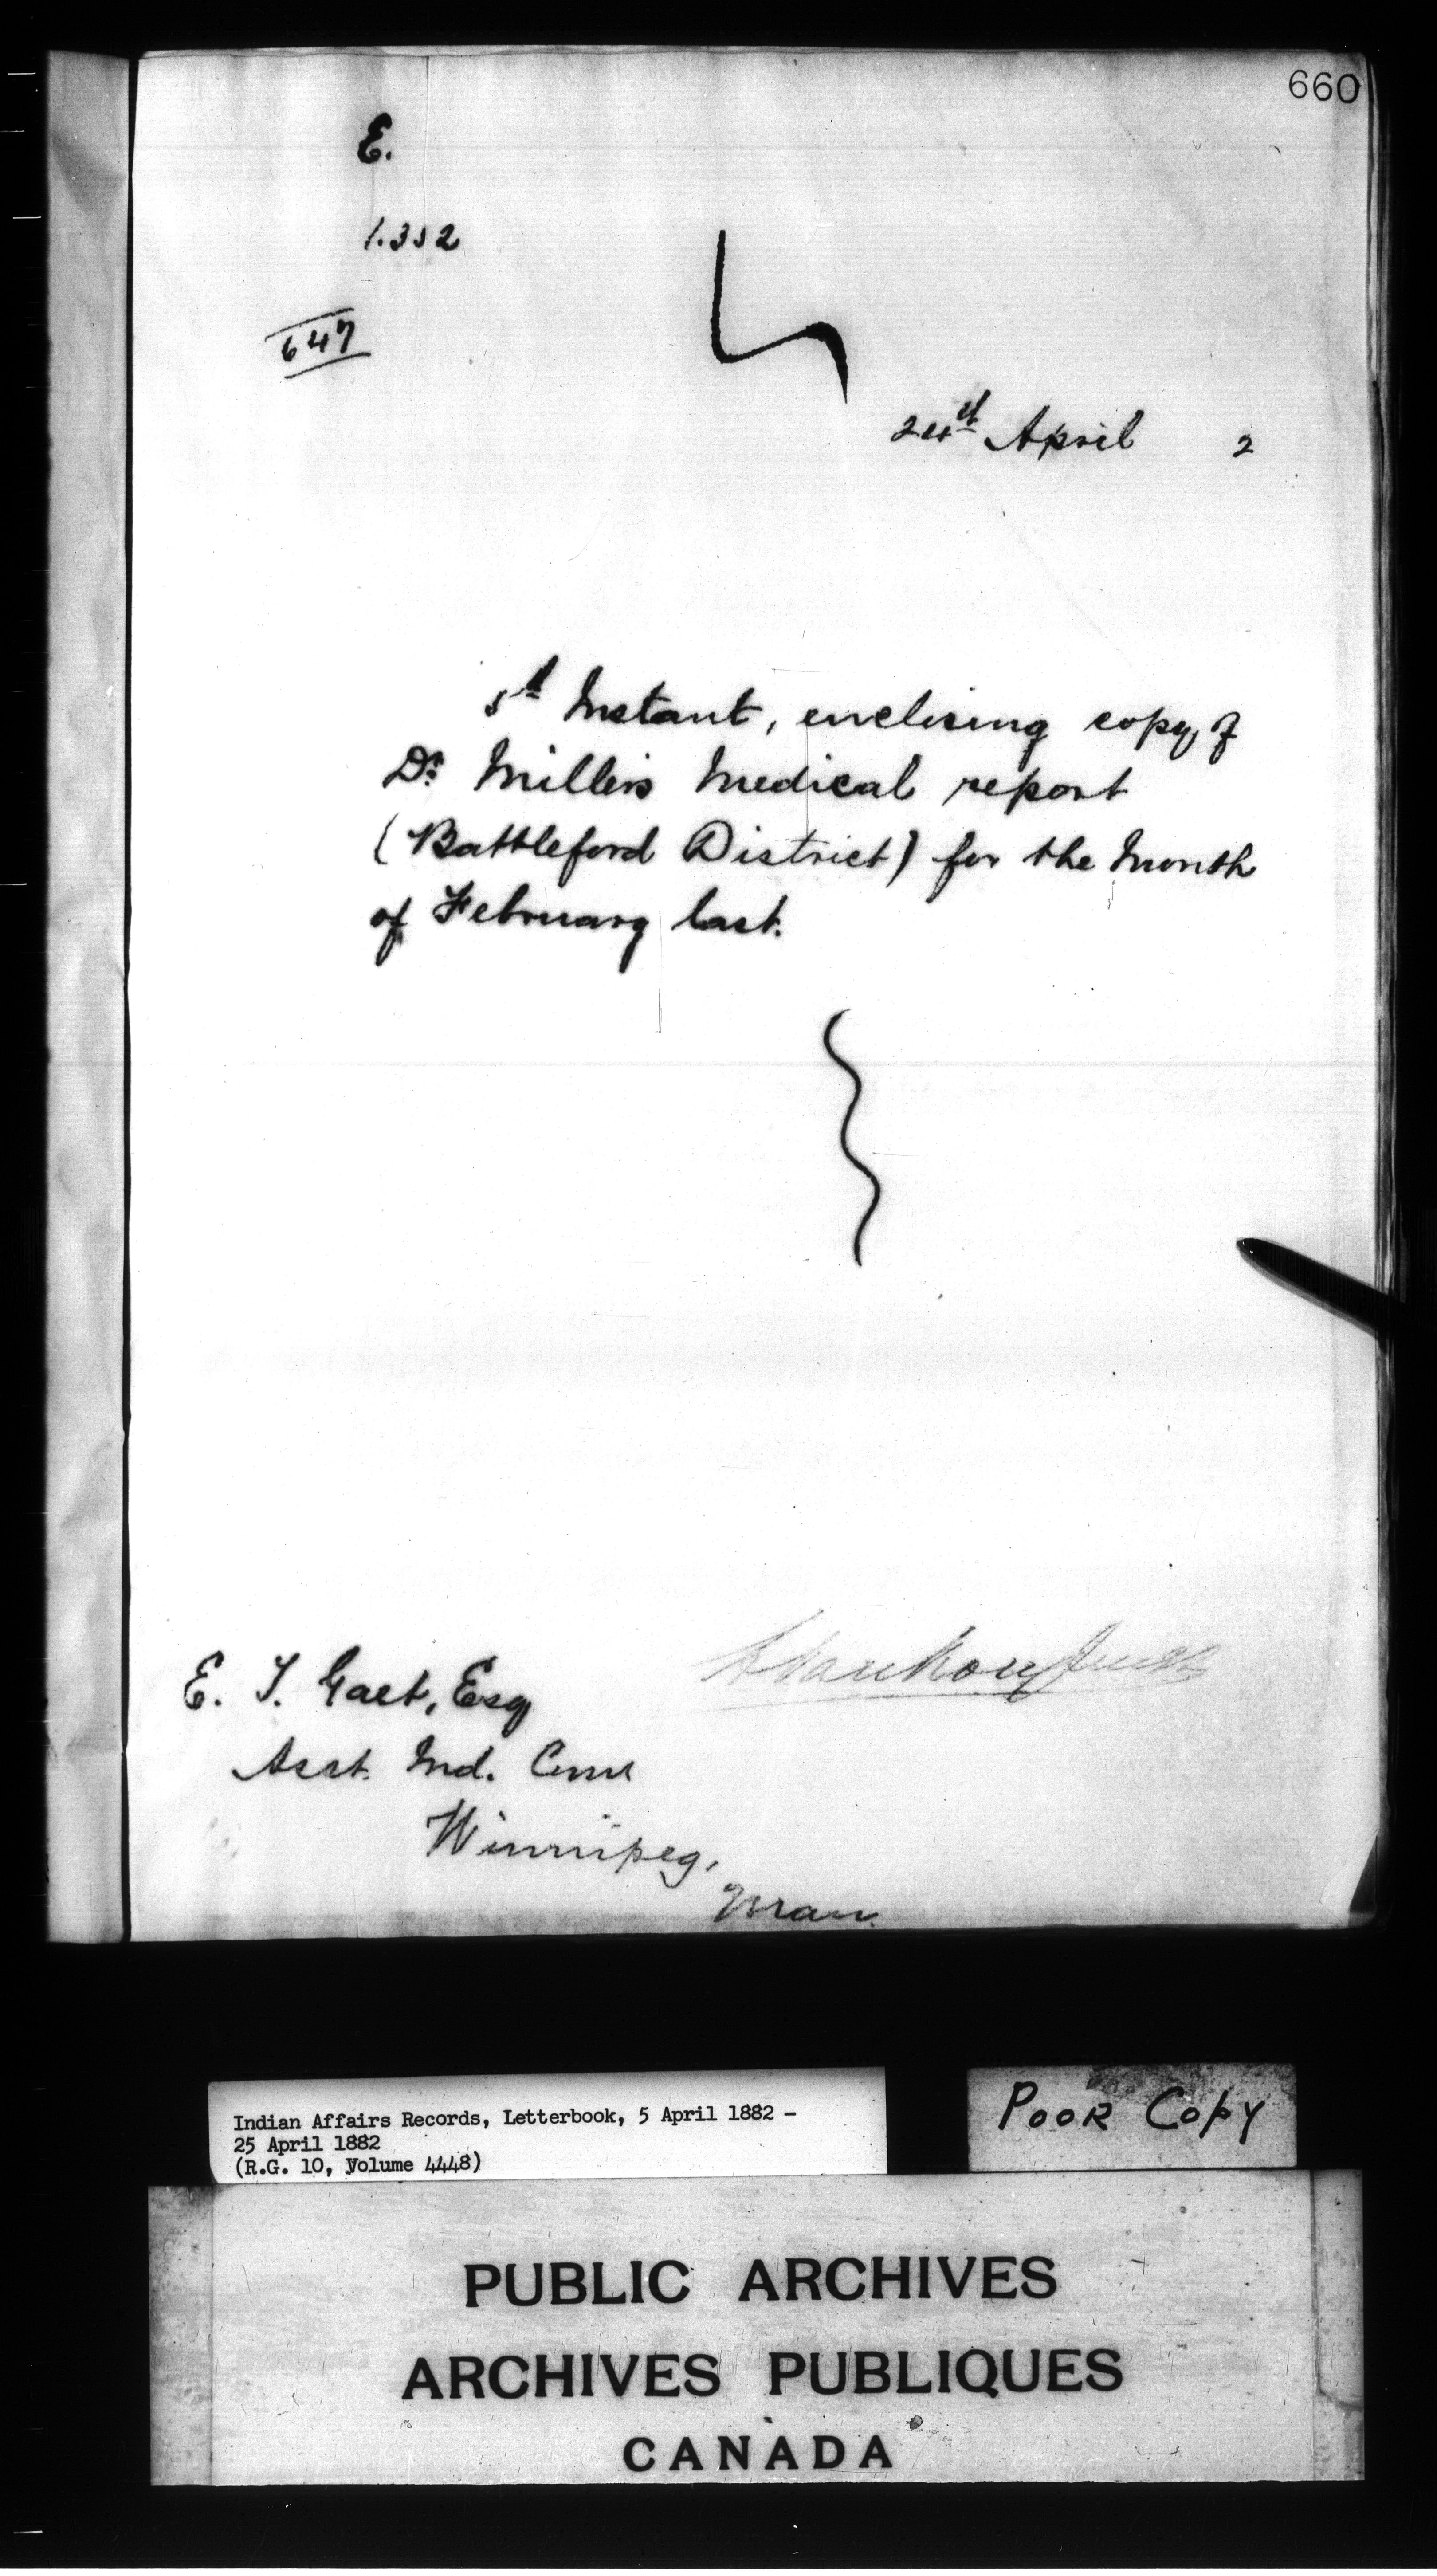 660
E.
1.352
647
24th April 2
5th Instant, enclosing copy of
Dr. Millers Medical report
(Battleford District) for the Month
of February last.
E. T. Galt, Esq
Asst. Ind. Comr
Winnipeg,
Man.
Indian Affairs Records, Letterbook, 5 April 1882 -
25 April 1882
(R.G. 10, Volume 4448)
POOR COPY
PUBLIC ARCHIVES
ARCHIVES PUBLIQUES
CANADA